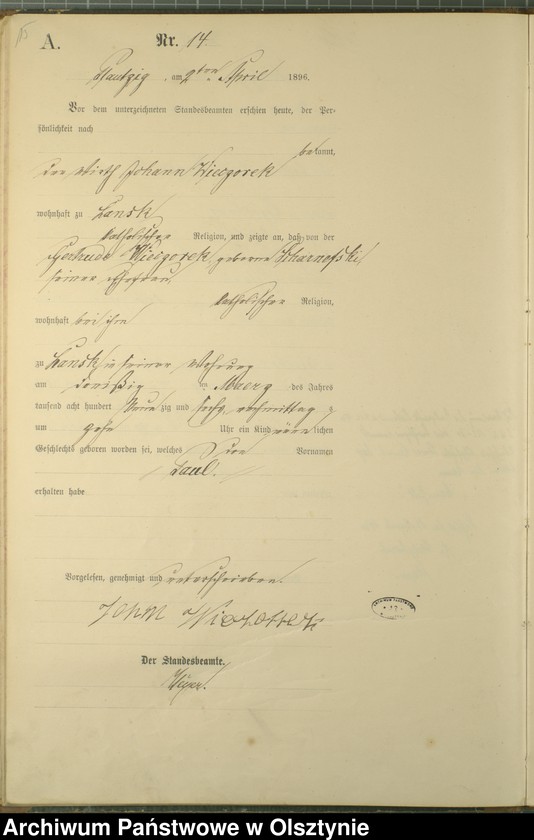 A.
Nr. 14.
am 2ten April 1896.
Vor dem unterzeichneten Standesbeamten erschien heute, der Per-
sönlichkeit nach
bekannt,
der Wirth Johann Wieczorek
wohnhaft zu Lansk
katholischer Religion, und zeigte an, daß von der
Gertrude Wieczorek geborene
seiner Ehefrau,
katholischer Religion,
wohnhaft bei ihm
zu Lansk in seiner Wohnung
am dreißig ten Maerz des Jahres
tausend acht hundert neun zig und sechs, nachmittag s
um zehn Uhr ein Kind männ lichen
Geschlechts geboren worden sei, welches den Vornamen
Paul.
erhalten habe
Vorgelesen, genehmigt und unterschrieben.
Der Standesbeamte.
Archiwum Państwowe w Olsztynie